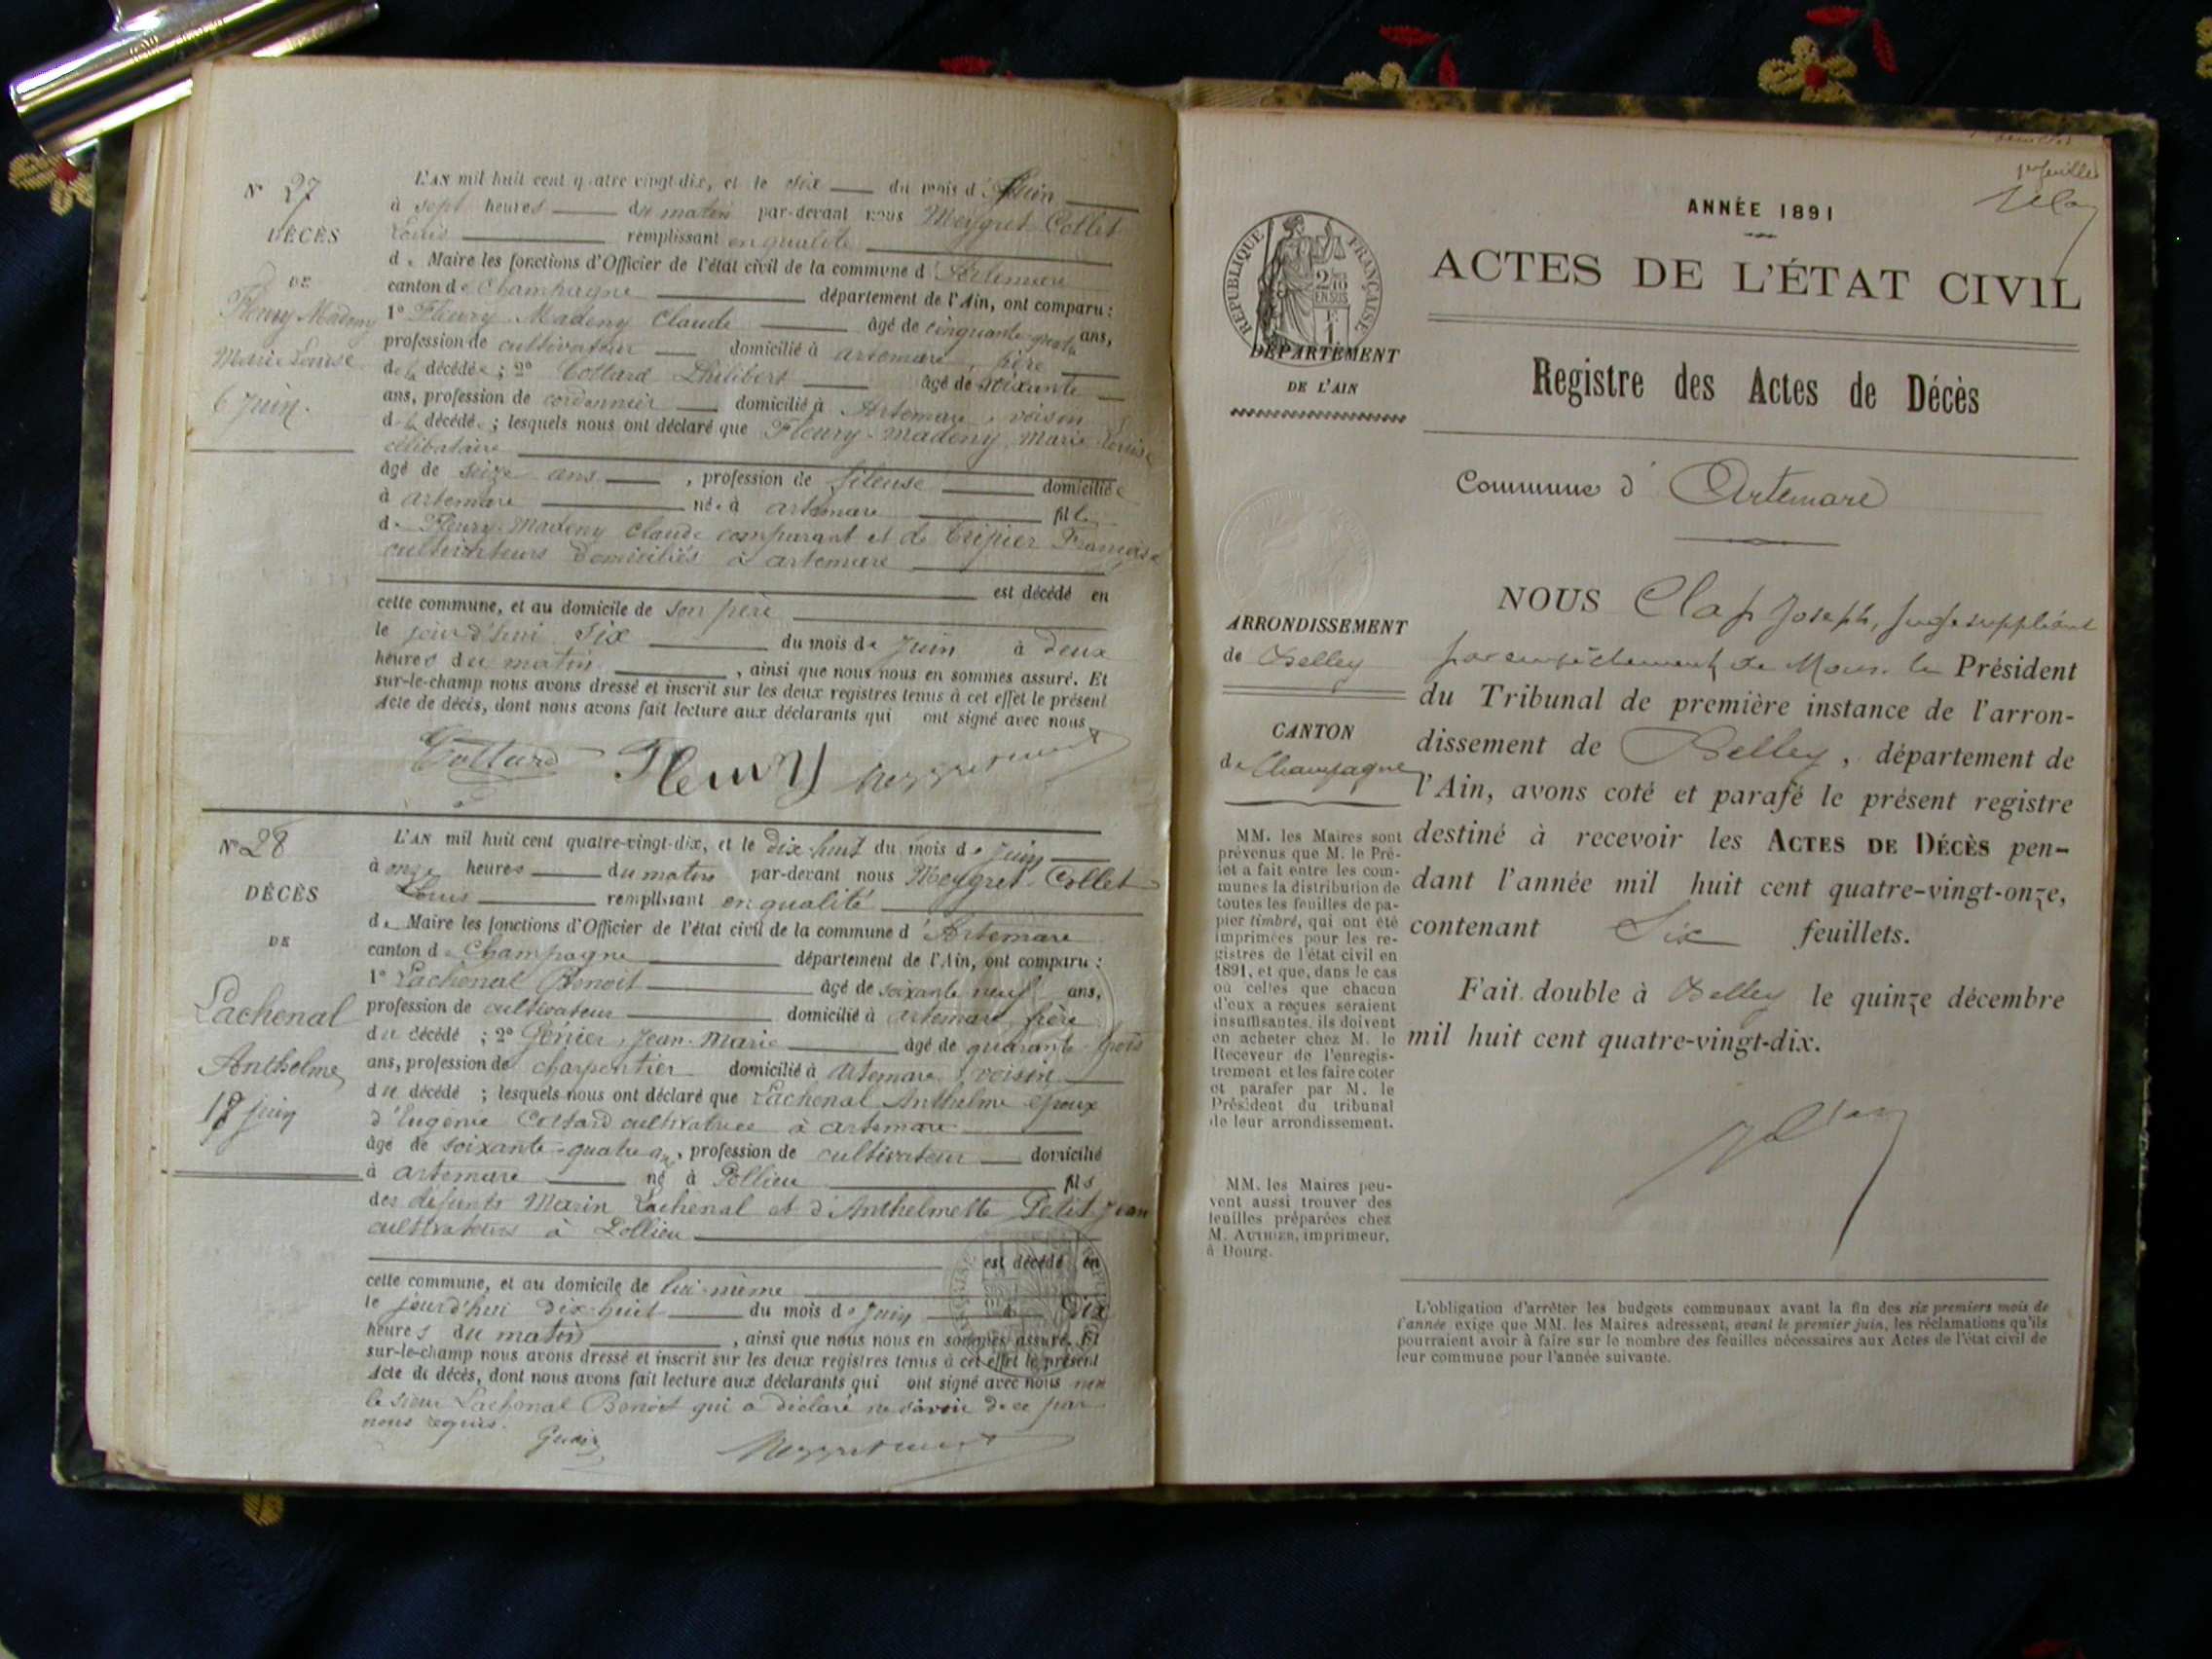 N° 27
DÉCÈS
DE
Fleury Madeny
Marie Louise
6 Juin.
L'AN mil huit cent quatre-vingt-dix, et le six du mois d Juin
à sept heures du matin par-devant nous Meygret Collet
Louis remplissant en qualité
de Maire les fonctions d'Officier de l'état civil de la commune d'Artemare
canton de Champagne département de l'Ain, ont comparu :
1° Fleury Madeny Claude âgé de cinquante quatre ans,
profession de cultivateur domicilié à artemare, père
de la décédée ; 2° Cottard Philibert âgé de soixante
ans, profession de cordonnier domicilié à Artemare, voisin
de la décédée ; lesquels nous ont déclaré que Fleury-Madeny Marie Louise
célibataire
âgé de seize ans, profession de fileuse domiciliée
à artemare née à artemare fille
de Fleury-Madeny Claude comparant et de Tripier Françoise
cultivateurs domiciliés à artemare
est décédé en
cette commune, et au domicile de son père
le jourd'hui six du mois de Juin à deux
heures du matin, ainsi que nous nous en sommes assuré. Et
sur-le-champ nous avons dressé et inscrit sur les deux registres tenus à cet effet le présent
Acte de décès, dont nous avons fait lecture aux déclarants qui ont signé avec nous
Cottard Fleury
N° 28
DÉCÈS
DE
Lachenal
Anthelme
18 juin
L'AN mil huit cent quatre-vingt-dix, et le dix huit du mois de Juin
à onze heures du matin par-devant nous Meygret-Collet
Louis remplissant en qualité
de Maire les fonctions d'Officier de l'état civil de la commune d'Artemare
canton de Champagne département de l'Ain, ont comparu :
1° Lachenal Benoit âgé de soixante neuf ans,
profession de cultivateur domicilié à artemare, frère
du décédé ; 2° Jean-Marie âgé de quarante trois
ans, profession de charpentier domicilié à Artemare, voisin
du décédé ; lesquels nous ont déclaré que Lachenal Anthelme époux
d'Eugénie Cottard cultivatrice à artemare
âgé de soixante-quatre ans, profession de cultivateur domicilié
à artemare né à Pollieu fils
des défunts Marin Lachenal et d'Anthelmette Petit Jean
cultivateurs à Pollieu
est décédé en
cette commune, et au domicile de lui-même
le jourd'hui dix-huit du mois de Juin à Dix
heures du matin, ainsi que nous nous en sommes assuré. Et
sur-le-champ nous avons dressé et inscrit sur les deux registres tenus à cet effet le présent
Acte de décès, dont nous avons fait lecture aux déclarants qui ont signé avec nous non
le sieur Lachenal Benoit qui a déclaré ne savoir de ce par
nous requis.
1er feuillet
ANNÉE 1891
ACTES DE L'ÉTAT CIVIL
RÉPUBLIQUE FRANÇAISE
2/10 EN SUS
DÉPARTEMENT
DE L'AIN
Registre des Actes de Décès
Commune d'Artemare
ARRONDISSEMENT
de Belley
CANTON
de Champagne
NOUS Clap Joseph, juge suppléant
par empêchement de Mons. le Président
du Tribunal de première instance de l'arron-
dissement de Belley, département de
l'Ain, avons coté et parafé le présent registre
destiné à recevoir les ACTES DE DÉCÈS pen-
dant l'année mil huit cent quatre-vingt-onze,
contenant Six feuillets.
Fait double à Belley le quinze décembre
mil huit cent quatre-vingt-dix.
MM. les Maires sont
prévenus que M. le Pré-
fet a fait entre les com-
munes la distribution de
toutes les feuilles de pa-
pier timbré, qui ont été
imprimées pour les re-
gistres de l'état civil en
1891, et que, dans le cas
où celles que chacun
d'eux a reçues seraient
insuffisantes, ils doivent
en acheter chez M. le
Receveur de l'enregis-
trement et les faire coter
et parafer par M. le
Président du tribunal
de leur arrondissement.
MM. les Maires peu-
vent aussi trouver des
feuilles préparées chez
M. AUTHIER, imprimeur,
à Bourg.
L'obligation d'arrêter les budgets communaux avant la fin des six premiers mois de
l'année exige que MM. les Maires adressent, avant le premier juin, les réclamations qu'ils
pourraient avoir à faire sur le nombre des feuilles nécessaires aux Actes de l'état civil de
leur commune pour l'année suivante.